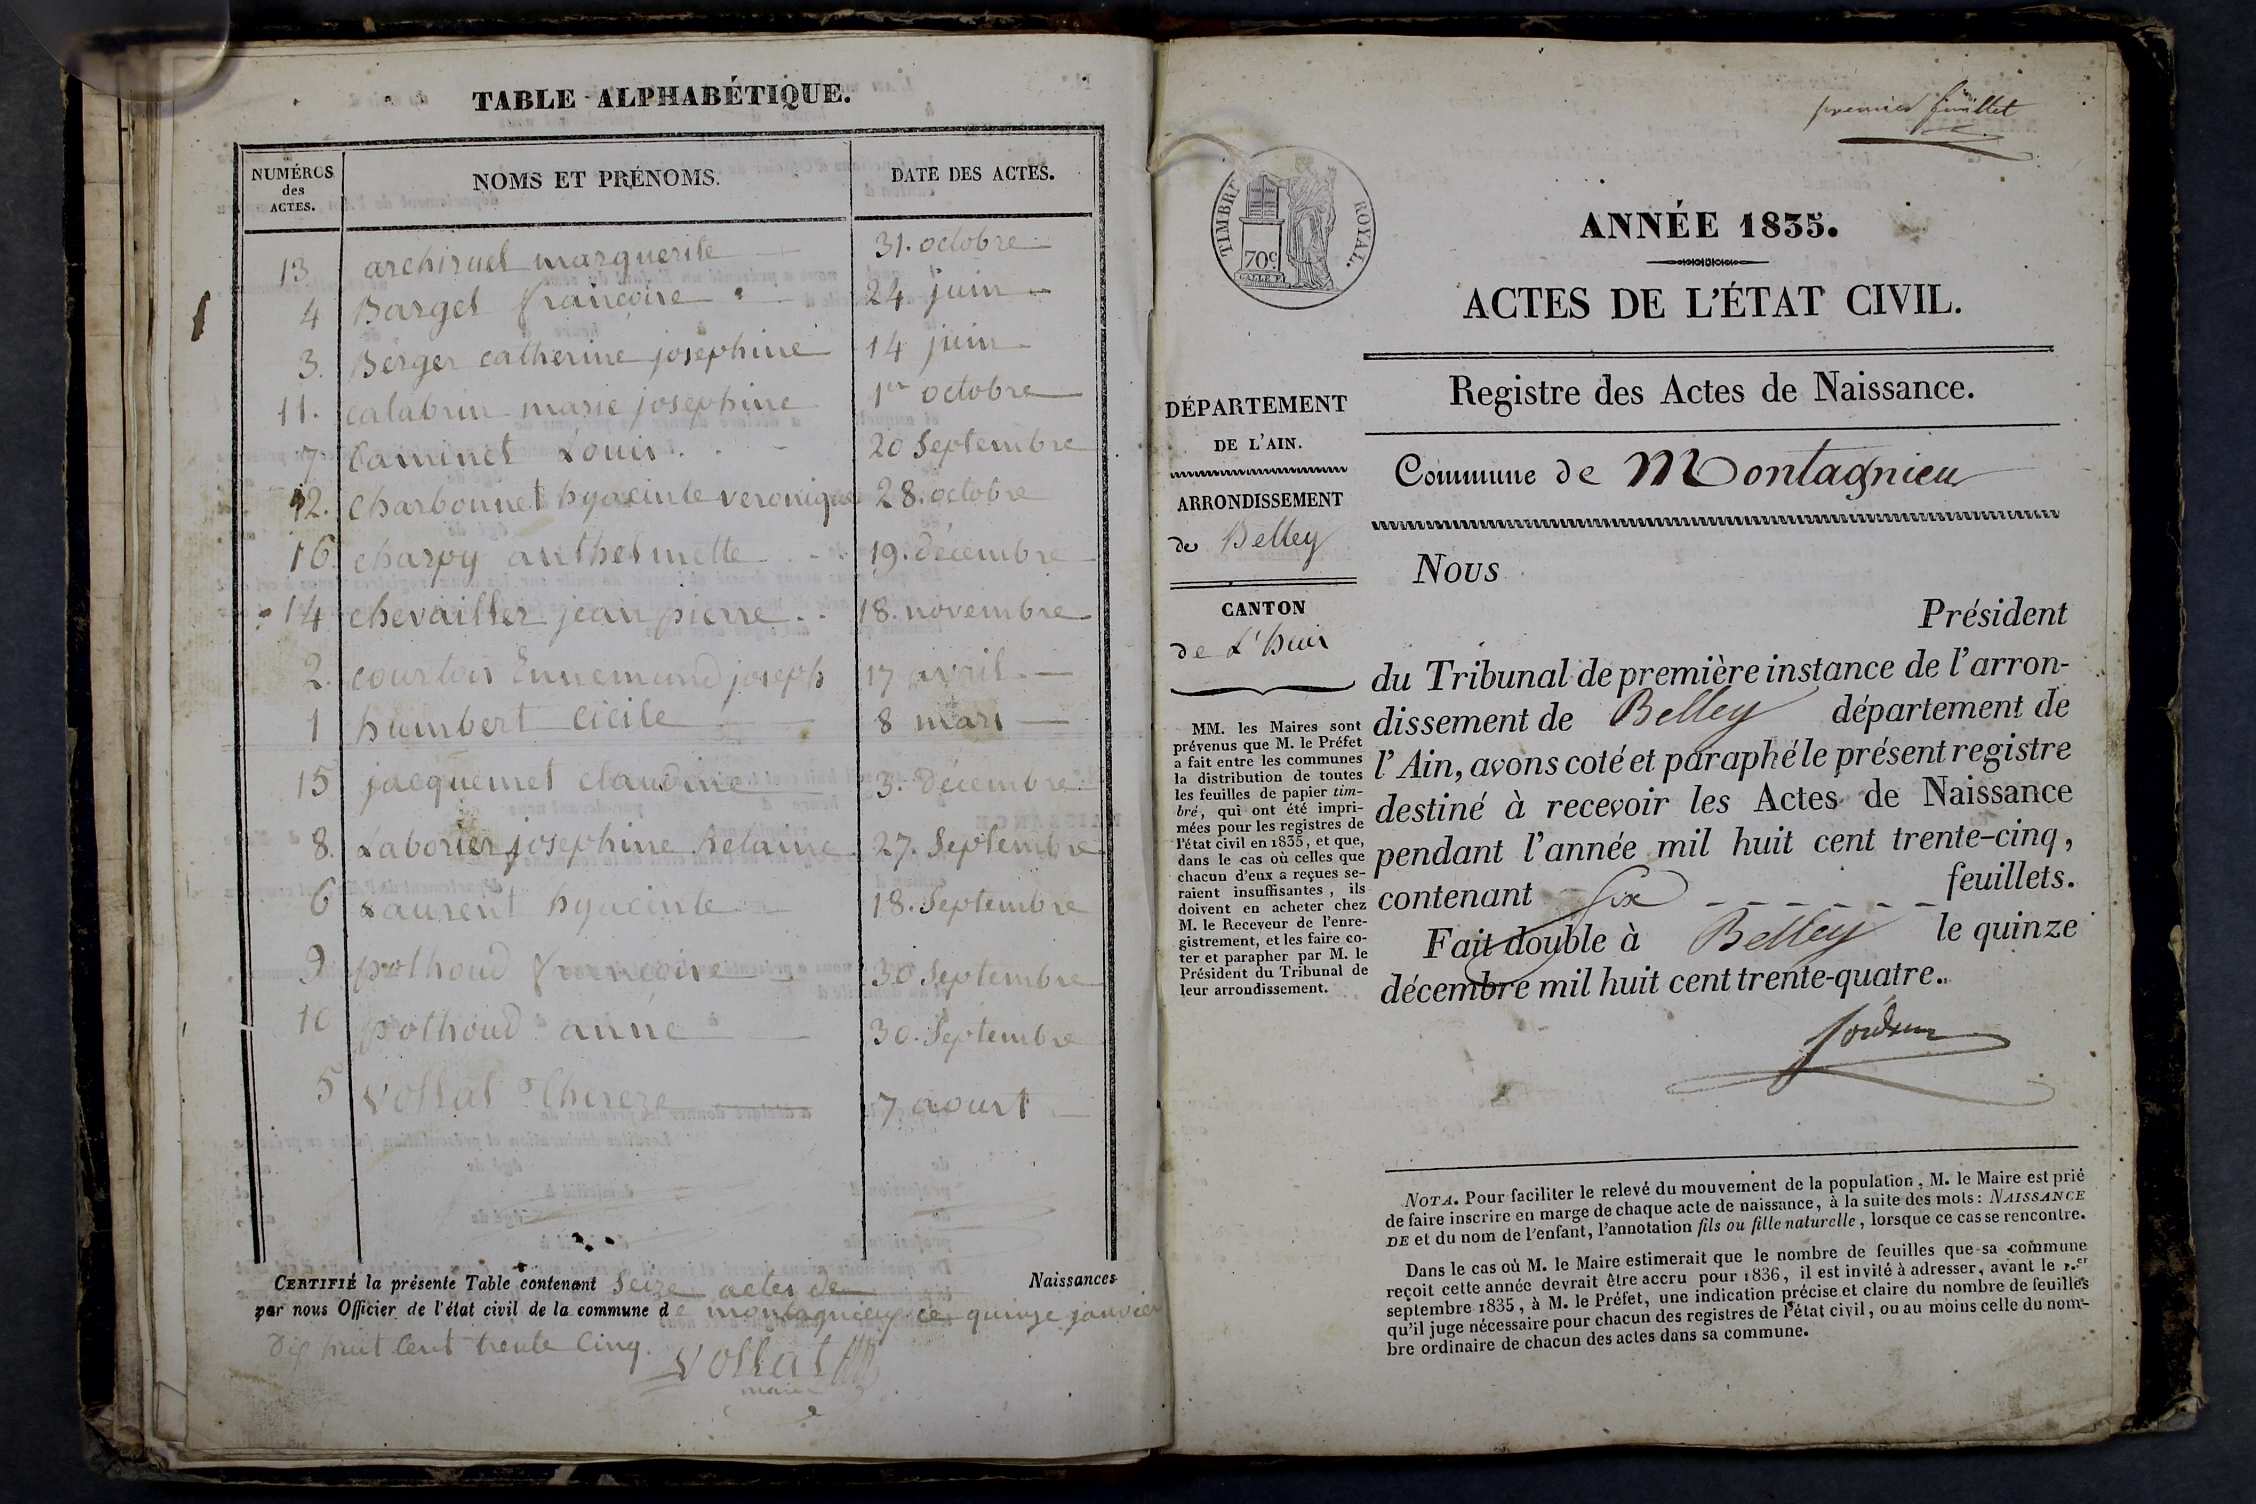 TABLE ALPHABÉTIQUE.
NUMÉROS des ACTES. NOMS ET PRÉNOMS. DATE DES ACTES.
13 archiruel marguerite 31. octobre
4 Barget françoise 24 juin
3. Berger catherine josephine 14 juin
11. calabrin marie josephine 1er octobre
7 Caminet Louis. 20 Septembre
12. Charbonnet hyacinte veronique 28. octobre
16. charpy anthelmette 19. décembre
14 chevailler jean pierre.. 18. novembre
2. courtois Ennemund joseph 17 avril
1 humbert Cicile 8 mars
15 jacquemet claudine 3. Décembre
8. Laborier josephine helaine 27. Septembre
6 Laurent hyacinte 18. Septembre
9 pothoud françoise 30 Septembre
10 pothoud anne 30. Septembre
5 Vollat Thereze 7 aoust
CERTIFIÉ la présente Table contenant Seize actes de Naissances
par nous Officier de l'état civil de la commune de montagnieu ce quinze janvier
Dix huit Cent trente Cinq.
Vollat
maire
premier feuillet
TIMBRE ROYAL.
70c
ANNÉE 1835.
ACTES DE L'ÉTAT CIVIL.
Registre des Actes de Naissance.
Commune de Montagnieu
DÉPARTEMENT
DE L'AIN.
ARRONDISSEMENT
de Belley
CANTON
de L'huis
MM. les Maires sont
prévenus que M. le Préfet
a fait entre les communes
la distribution de toutes
les feuilles de papier tim-
bré, qui ont été impri-
mées pour les registres de
l'état civil en 1835, et que,
dans le cas où celles que
chacun d'eux a reçues se-
raient insuffisantes, ils
doivent en acheter chez
M. le Receveur de l'enre-
gistrement, et les faire co-
ter et parapher par M. le
Président du Tribunal de
leur arrondissement.
Nous
Président
du Tribunal de première instance de l'arron-
dissement de Belley département de
l'Ain, avons coté et paraphé le présent registre
destiné à recevoir les Actes de Naissance
pendant l'année mil huit cent trente-cinq,
contenant Six feuillets.
Fait double à Belley le quinze
décembre mil huit cent trente-quatre.
NOTA. Pour faciliter le relevé du mouvement de la population, M. le Maire est prié
de faire inscrire en marge de chaque acte de naissance, à la suite des mots: NAISSANCE
DE et du nom de l'enfant, l'annotation fils ou fille naturelle, lorsque ce cas se rencontre.
Dans le cas où M. le Maire estimerait que le nombre de feuilles que sa commune
reçoit cette année devrait être accru pour 1836, il est invité à adresser, avant le 1.er
septembre 1835, à M. le Préfet, une indication précise et claire du nombre de feuilles
qu'il juge nécessaire pour chacun des registres de l'état civil, ou au moins celle du nom-
bre ordinaire de chacun des actes dans sa commune.